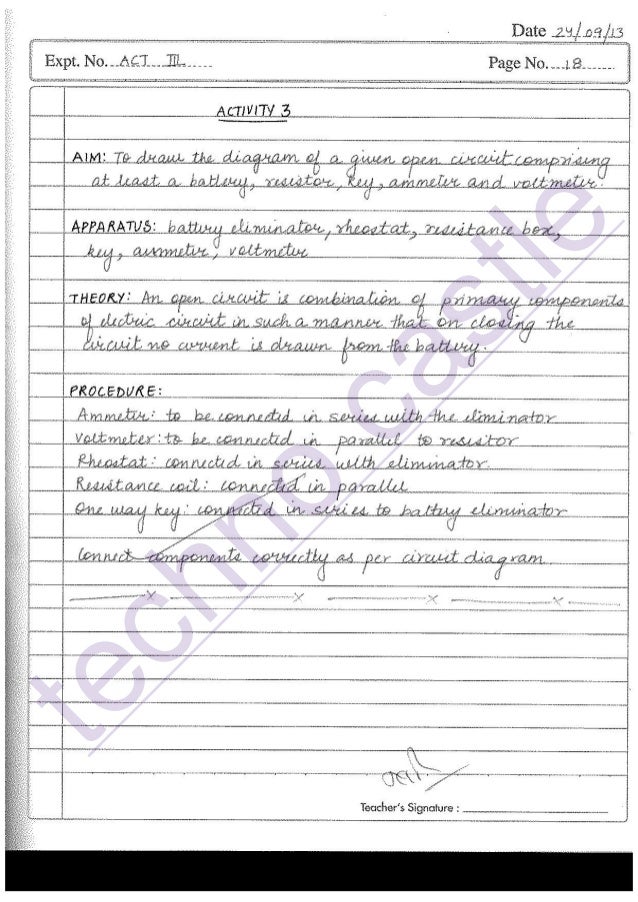 Date 24/09/13
Expt. No. ACT III
Page No. 18
ACTIVITY 3
AIM: To draw the diagram of a given open circuit comprising
at least a battery, resistor, key, ammeter and voltmeter.
APPARATUS: battery eliminator, rheostat, resistance box,
key, ammeter, voltmeter
THEORY: An open circuit is combination of primary components
of electric circuit in such a manner that on closing the
circuit no current is drawn from the battery.
PROCEDURE:
Ammeter: to be connected in series with the eliminator
Voltmeter: to be connected in parallel to resistor
Rheostat: connected in series with eliminator
Resistance coil: connected in parallel
One way key: connected in series to battery eliminator
Connect components correctly as per circuit diagram.
Teacher's Signature :
techno castle